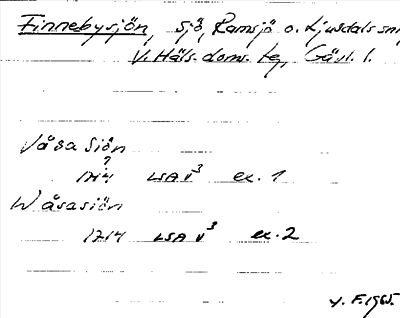 Finnebysjön, sjö, Ramsjö o. Ljusdals snr,
V. Häls. doms. tg, Gävl. l.
Våsa Siön
?
1714 LSA v³ ex. 1
Wåsasiön
1714 LSA v³ ex. 2
V. F. 1965.